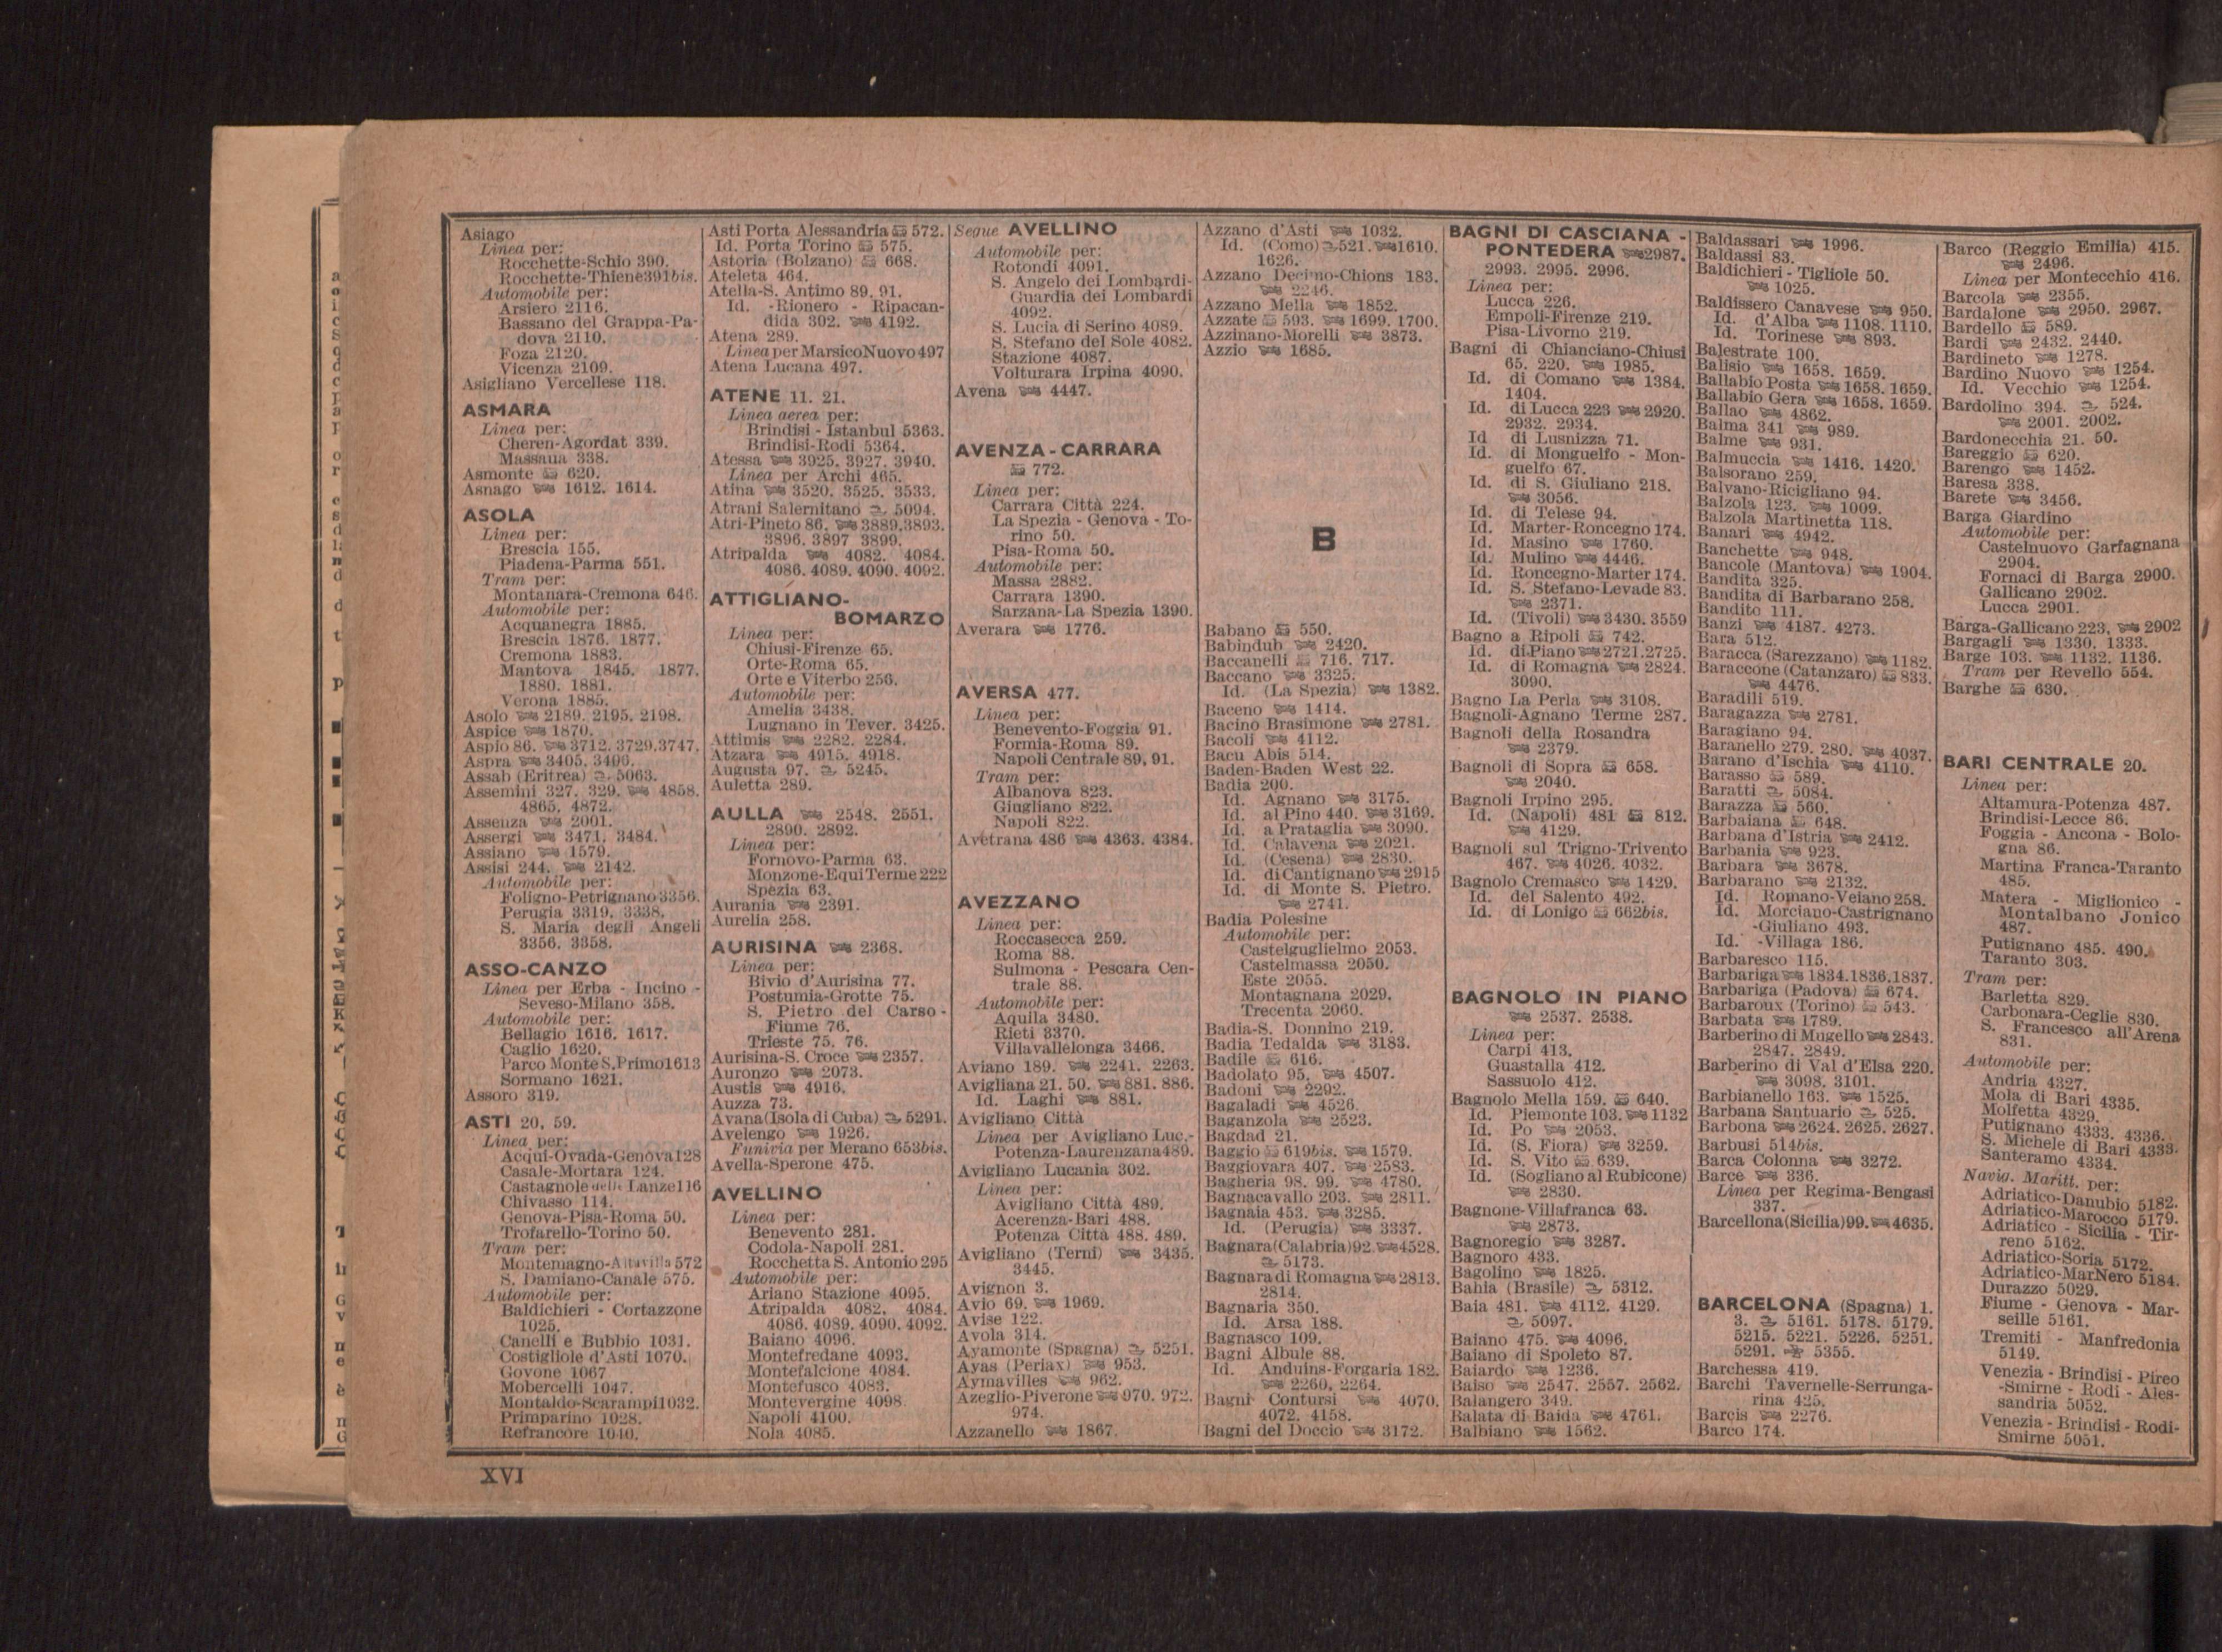 Asiago
Linea per:
Rocchette-Schio 390.
Rocchette-Thiene391bis.
Automobile per:
Arsiero 2116.
Bassano del Grappa-Pa-
dova 2110.
Foza 2120.
Vicenza 2109.
Asigliano Vercellese 118.
ASMARA
Linea per:
Cheren-Agordat 339.
Massaua 338.
Asmonte 620.
Asnago 1612. 1614.
ASOLA
Linea per:
Brescia 155.
Piadena-Parma 551.
Tram per:
Montanara-Cremona 646.
Automobile per:
Acquanegra 1885.
Brescia 1876. 1877.
Cremona 1883.
Mantova 1845. 1877.
1880. 1881.
Verona 1885.
Asolo 2189. 2195. 2198.
Aspice 1870.
Aspio 86. 3712. 3729.3747.
Aspra 3405. 3406.
Assab (Eritrea) 5063.
Assemini 327. 329. 4858.
4865. 4872.
Assenza 2001.
Assergi 3471. 3484.
Assiano 1579.
Assisi 244. 2142.
Automobile per:
Foligno-Petrignano3356.
Perugia 3319. 3338.
S. Maria degli Angeli
3356. 3358.
ASSO-CANZO
Linea per Erba - Incino -
Seveso-Milano 358.
Automobile per:
Bellagio 1616. 1617.
Caglio 1620.
Parco Monte S.Primo1613
Sormano 1621.
Assoro 319.
ASTI 20, 59.
Linea per:
Acqui-Ovada-Genova128
Casale-Mortara 124.
Castagnole delle Lanze116
Chivasso 114.
Genova-Pisa-Roma 50.
Trofarello-Torino 50.
Tram per:
Montemagno-Altavilla 572
S. Damiano-Canale 575.
Automobile per:
Baldichieri - Cortazzone
1025.
Canelli e Bubbio 1031.
Costigliole d'Asti 1070.
Govone 1067
Mobercelli 1047.
Montaldo-Scarampi1032.
Primparino 1028.
Refrancore 1040.
Asti Porta Alessandria 572.
Id. Porta Torino 575.
Astoria (Bolzano) 668.
Ateleta 464.
Atella-S. Antimo 89, 91.
Id. -Rionero - Ripacan-
dida 302. 4192.
Atena 289.
Linea per MarsicoNuovo 497
Atena Lucana 497.
ATENE 11. 21.
Linea aerea per:
Brindisi - Istanbul 5363.
Brindisi-Rodi 5364.
Atessa 3925. 3927. 3940.
Linea per Archi 465.
Atina 3520. 3525. 3533.
Atrani Salernitano 5094.
Atri-Pineto 86. 3889.3893.
3896. 3897 3899.
Atripalda 4082. 4084.
4086. 4089. 4090. 4092.
ATTIGLIANO-
BOMARZO
Linea per:
Chiusi-Firenze 65.
Orte-Roma 65.
Orte e Viterbo 256.
Automobile per:
Amelia 3438.
Lugnano in Tever. 3425.
Attimis 2282. 2284.
Atzara 4915. 4918.
Augusta 97. 5245.
Auletta 289.
AULLA 2548. 2551.
2890. 2892.
Linea per:
Fornovo-Parma 63.
Monzone-Equi Terme 222
Spezia 63.
Aurania 2391.
Aurelia 258.
AURISINA 2368.
Linea per:
Bivio d'Aurisina 77.
Postumia-Grotte 75.
S. Pietro del Carso -
Fiume 76.
Trieste 75. 76.
Aurisina-S. Croce 2357.
Auronzo 2073.
Austis 4916.
Auzza 73.
Avana(Isola di Cuba) 5291.
Avelengo 1926.
Funivia per Merano 653bis.
Avella-Sperone 475.
AVELLINO
Linea per:
Benevento 281.
Codola-Napoli 281.
Rocchetta S. Antonio 295
Automobile per:
Ariano Stazione 4095.
Atripalda 4082. 4084.
4086. 4089. 4090. 4092.
Baiano 4096.
Montefredane 4093.
Montefalcione 4084.
Montefusco 4083.
Montevergine 4098.
Napoli 4100.
Nola 4085.
Segue AVELLINO
Automobile per:
Rotondi 4091.
S. Angelo dei Lombardi-
Guardia dei Lombardi
4092.
S. Lucia di Serino 4089.
S. Stefano del Sole 4082.
Stazione 4087.
Volturara Irpina 4090.
Avena 4447.
AVENZA - CARRARA
772.
Linea per:
Carrara Città 224.
La Spezia - Genova - To-
rino 50.
Pisa-Roma 50.
Automobile per:
Massa 2882.
Carrara 1390.
Sarzana-La Spezia 1390.
Averara 1776.
AVERSA 477.
Linea per:
Benevento-Foggia 91.
Formia-Roma 89.
Napoli Centrale 89, 91.
Tram per:
Albanova 823.
Giugliano 822.
Napoli 822.
Avetrana 486 4363. 4384.
AVEZZANO
Linea per:
Roccasecca 259.
Roma 88.
Sulmona - Pescara Cen-
trale 88.
Automobile per:
Aquila 3480.
Rieti 3370.
Villavallelonga 3466.
Aviano 189. 2241. 2263.
Avigliana 21. 50. 881. 886.
Id. Laghi 881.
Avigliano Città
Linea per Avigliano Luc.-
Potenza-Laurenzana489.
Avigliano Lucania 302.
Linea per:
Avigliano Città 489.
Acerenza-Bari 488.
Potenza Città 488. 489.
Avigliano (Terni) 3435.
3445.
Avignon 3.
Avio 69. 1969.
Avise 122.
Avola 314.
Ayamonte (Spagna) 5251.
Ayas (Periax) 953.
Aymavilles 962.
Azeglio-Piverone 970. 972.
974.
Azzanello 1867.
Azzano d'Asti 1032.
Id. (Como) 521. 1610.
1626.
Azzano Decimo-Chions 183.
2246.
Azzano Mella 1852.
Azzate 593. 1699. 1700.
Azzinano-Morelli 3873.
Azzio 1685.
B
Babano 550.
Babindub 2420.
Baccanelli 716. 717.
Baccano 3325.
Id. (La Spezia) 1382.
Baceno 1414.
Bacino Brasimone 2781.
Bacoli 4112.
Bacu Abis 514.
Baden-Baden West 22.
Badia 200.
Id. Agnano 3175.
Id. al Pino 440. 3169.
Id. a Prataglia 3090.
Id. Calavena 2021.
Id. (Cesena) 2830.
Id. di Cantignano 2915
Id. di Monte S. Pietro.
2741.
Badia Polesine
Automobile per:
Castelguglielmo 2053.
Castelmassa 2050.
Este 2055.
Montagnana 2029.
Trecenta 2060.
Badia-S. Donnino 219.
Badia Tedalda 3183.
Badile 616.
Badolato 95. 4507.
Badoni 2292.
Bagaladi 4526.
Baganzola 2523.
Bagdad 21.
Baggio 619bis. 1579.
Baggiovara 407. 2583.
Bagheria 98. 99. 4780.
Bagnacavallo 203. 2811.
Bagnaia 453. 3285.
Id. (Perugia) 3337.
Bagnara(Calabria)92. 4528.
5173.
Bagnara di Romagna 2813.
2814.
Bagnaria 350.
Id. Arsa 188.
Bagnasco 109.
Bagni Albule 88.
Id. Anduins-Forgaria 182.
2260. 2264.
Bagni Contursi 4070.
4072. 4158.
Bagni del Doccio 3172.
BAGNI DI CASCIANA -
PONTEDERA 2987.
2993. 2995. 2996.
Linea per:
Lucca 226.
Empoli-Firenze 219.
Pisa-Livorno 219.
Bagni di Chianciano-Chiusi
65. 220. 1985.
Id. di Comano 1384.
1404.
Id. di Lucca 223 2920.
2932. 2934.
Id di Lusnizza 71.
Id. di Monguelfo - Mon-
guelfo 67.
Id. di S. Giuliano 218.
3056.
Id. di Telese 94.
Id. Marter-Roncegno 174.
Id. Masino 1760.
Id. Mulino 4446.
Id. Roncegno-Marter 174.
Id. S. Stefano-Levade 83.
2371.
Id. (Tivoli) 3430. 3559
Bagno a Ripoli 742.
Id. di Piano 2721.2725.
Id. di Romagna 2824.
3090.
Bagno La Perla 3108.
Bagnoli-Agnano Terme 287.
Bagnoli della Rosandra
2379.
Bagnoli di Sopra 658.
2040.
Bagnoli Irpino 295.
Id. (Napoli) 481 812.
4129.
Bagnoli sul Trigno-Trivento
467. 4026. 4032.
Bagnolo Cremasco 1429.
Id. del Salento 492.
Id. di Lonigo 662bis.
BAGNOLO IN PIANO
2537. 2538.
Linea per:
Carpi 413.
Guastalla 412.
Sassuolo 412.
Bagnolo Mella 159. 640.
Id. Piemonte 103. 1132
Id. Po 2053.
Id. (S. Fiora) 3259.
Id. S. Vito 639.
Id. (Sogliano al Rubicone)
2830.
Bagnone-Villafranca 63.
2873.
Bagnoregio 3287.
Bagnoro 433.
Bagolino 1825.
Bahia (Brasile) 5312.
Baia 481. 4112. 4129.
5097.
Baiano 475. 4096.
Baiano di Spoleto 87.
Baiardo 1236.
Baiso 2547. 2557. 2562.
Balangero 349.
Balata di Baida 4761.
Balbiano 1562.
Baldassari 1996.
Baldassi 83.
Baldichieri - Tigliole 50.
1025.
Baldissero Canavese 950.
Id. d'Alba 1108. 1110.
Id. Torinese 893.
Balestrate 100.
Balisio 1658. 1659.
Ballabio Posta 1658. 1659.
Ballabio Gera 1658. 1659.
Ballao 4862.
Balma 341 989.
Balme 931.
Balmuccia 1416. 1420.
Balsorano 259.
Balvano-Ricigliano 94.
Balzola 123. 1009.
Balzola Martinetta 118.
Banari 4942.
Banchette 948.
Bancole (Mantova) 1904.
Bandita 325.
Bandita di Barbarano 258.
Bandito 111.
Banzi 4187. 4273.
Bara 512.
Baracca (Sarezzano) 1182.
Baraccone (Catanzaro) 833.
4476.
Baradili 519.
Baragazza 2781.
Baragiano 94.
Baranello 279. 280. 4037.
Barano d'Ischia 4110.
Barasso 589.
Baratti 5084.
Barazza 560.
Barbaiana 648.
Barbana d'Istria 2412.
Barbania 923.
Barbara 3678.
Barbarano 2132.
Id. Romano-Veiano 258.
Id. Morciano-Castrignano
-Giuliano 493.
Id. -Villaga 186.
Barbaresco 115.
Barbariga 1834.1836.1837.
Barbariga (Padova) 674.
Barbaroux (Torino) 543.
Barbata 1789.
Barberino di Mugello 2843.
2847. 2849.
Barberino di Val d'Elsa 220.
3098. 3101.
Barbianello 163. 1525.
Barbana Santuario 525.
Barbona 2624. 2625. 2627.
Barbusi 514bis.
Barca Colonna 3272.
Barce 336.
Linea per Regima-Bengasi
337.
Barcellona(Sicilia)99. 4635.
BARCELONA (Spagna) 1.
3. 5161. 5178. 5179.
5215. 5221. 5226. 5251.
5291. 5355.
Barchessa 419.
Barchi Tavernelle-Serrunga-
rina 425.
Barcis 2276.
Barco 174.
Barco (Reggio Emilia) 415.
2496.
Linea per Montecchio 416.
Barcola 2355.
Bardalone 2950. 2967.
Bardello 589.
Bardi 2432. 2440.
Bardineto 1278.
Bardino Nuovo 1254.
Id. Vecchio 1254.
Bardolino 394. 524.
2001. 2002.
Bardonecchia 21. 50.
Bareggio 620.
Barengo 1452.
Baresa 338.
Barete 3456.
Barga Giardino
Automobile per:
Castelnuovo Garfagnana
2904.
Fornaci di Barga 2900.
Gallicano 2902.
Lucca 2901.
Barga-Gallicano 223. 2902
Bargagli 1330. 1333.
Barge 103. 1132. 1136.
Tram per Revello 554.
Barghe 630.
BARI CENTRALE 20.
Linea per:
Altamura-Potenza 487.
Brindisi-Lecce 86.
Foggia - Ancona - Bolo-
gna 86.
Martina Franca-Taranto
485.
Matera - Miglionico -
Montalbano Jonico
487.
Putignano 485. 490.
Taranto 303.
Tram per:
Barletta 829.
Carbonara-Ceglie 830.
S. Francesco all'Arena
831.
Automobile per:
Andria 4327.
Mola di Bari 4335.
Molfetta 4329.
Putignano 4333. 4336.
S. Michele di Bari 4333.
Santeramo 4334.
Navig. Maritt. per:
Adriatico-Danubio 5182.
Adriatico-Marocco 5179.
Adriatico - Sicilia - Tir-
reno 5162.
Adriatico-Soria 5172.
Adriatico-MarNero 5184.
Durazzo 5029.
Fiume - Genova - Mar-
seille 5161.
Tremiti - Manfredonia
5149.
Venezia - Brindisi - Pireo
-Smirne - Rodi - Ales-
sandria 5052.
Venezia - Brindisi - Rodi-
Smirne 5051.
XVI